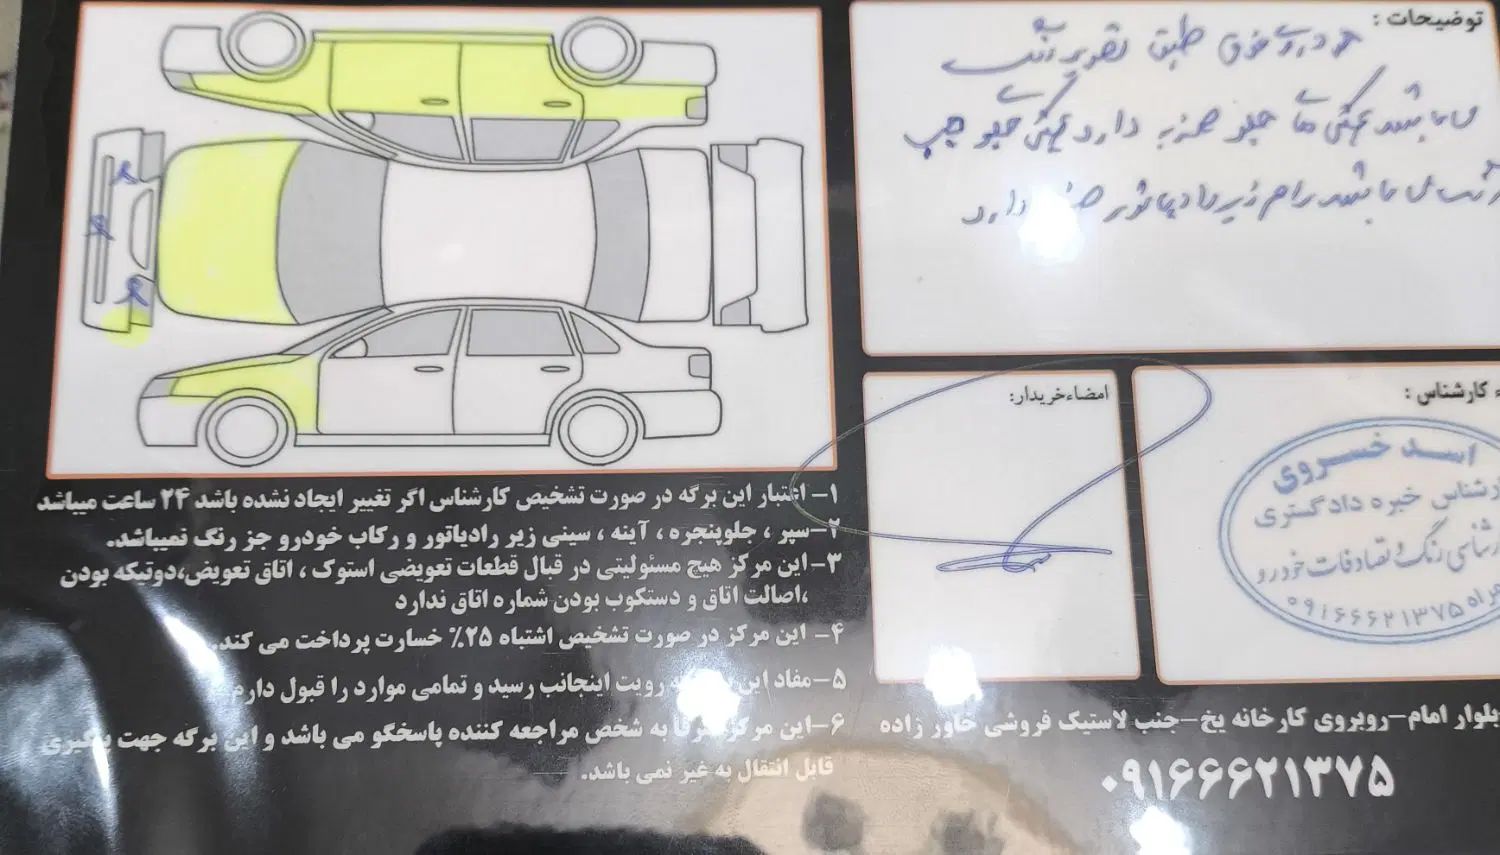 توضیحات :
خودرو فوق طبق تصویر رنگ
می باشد سینی جلو ضربه دارد سینی جلو چپ
رنگ می باشد رام زیر رادیاتور ضربه دارد
امضاءخریدار:
کارشناس :
اسد خسروی
کارشناس خبره دادگستری
کارشناسی رنگ و تصادفات خودرو
همراه ۰۹۱۶۶۶۲۱۳۷۵
۱- اعتبار این برگه در صورت تشخیص کارشناس اگر تغییر ایجاد نشده باشد ۲۴ ساعت میباشد
۲-سپر ، جلوپنجره ، آینه ، سینی زیر رادیاتور و رکاب خودرو جز رنگ نمیباشد.
۳-این مرکز هیچ مسئولیتی در قبال قطعات تعویضی استوک ، اتاق تعویض،دوتیکه بودن
،اصالت اتاق و دستکوب بودن شماره اتاق ندارد
۴- این مرکز در صورت تشخیص اشتباه ۲۵٪ خسارت پرداخت می کند.
۵-مفاد این رویت اینجانب رسید و تمامی موارد را قبول دارم
۶-این مرکز صرفا به شخص مراجعه کننده پاسخگو می باشد و این برگه جهت پیگیری
قابل انتقال به غیر نمی باشد.
بلوار امام-روبروی کارخانه یخ-جنب لاستیک فروشی خاور زاده
۰۹۱۶۶۶۲۱۳۷۵